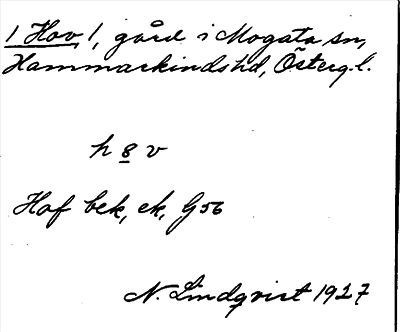 1 Hov, 1, gård i Mogata sn,
Hammarkinds hd, Österg.l.
h 8 v
Hof bek, ek, G56
N. Lindqvist 1927